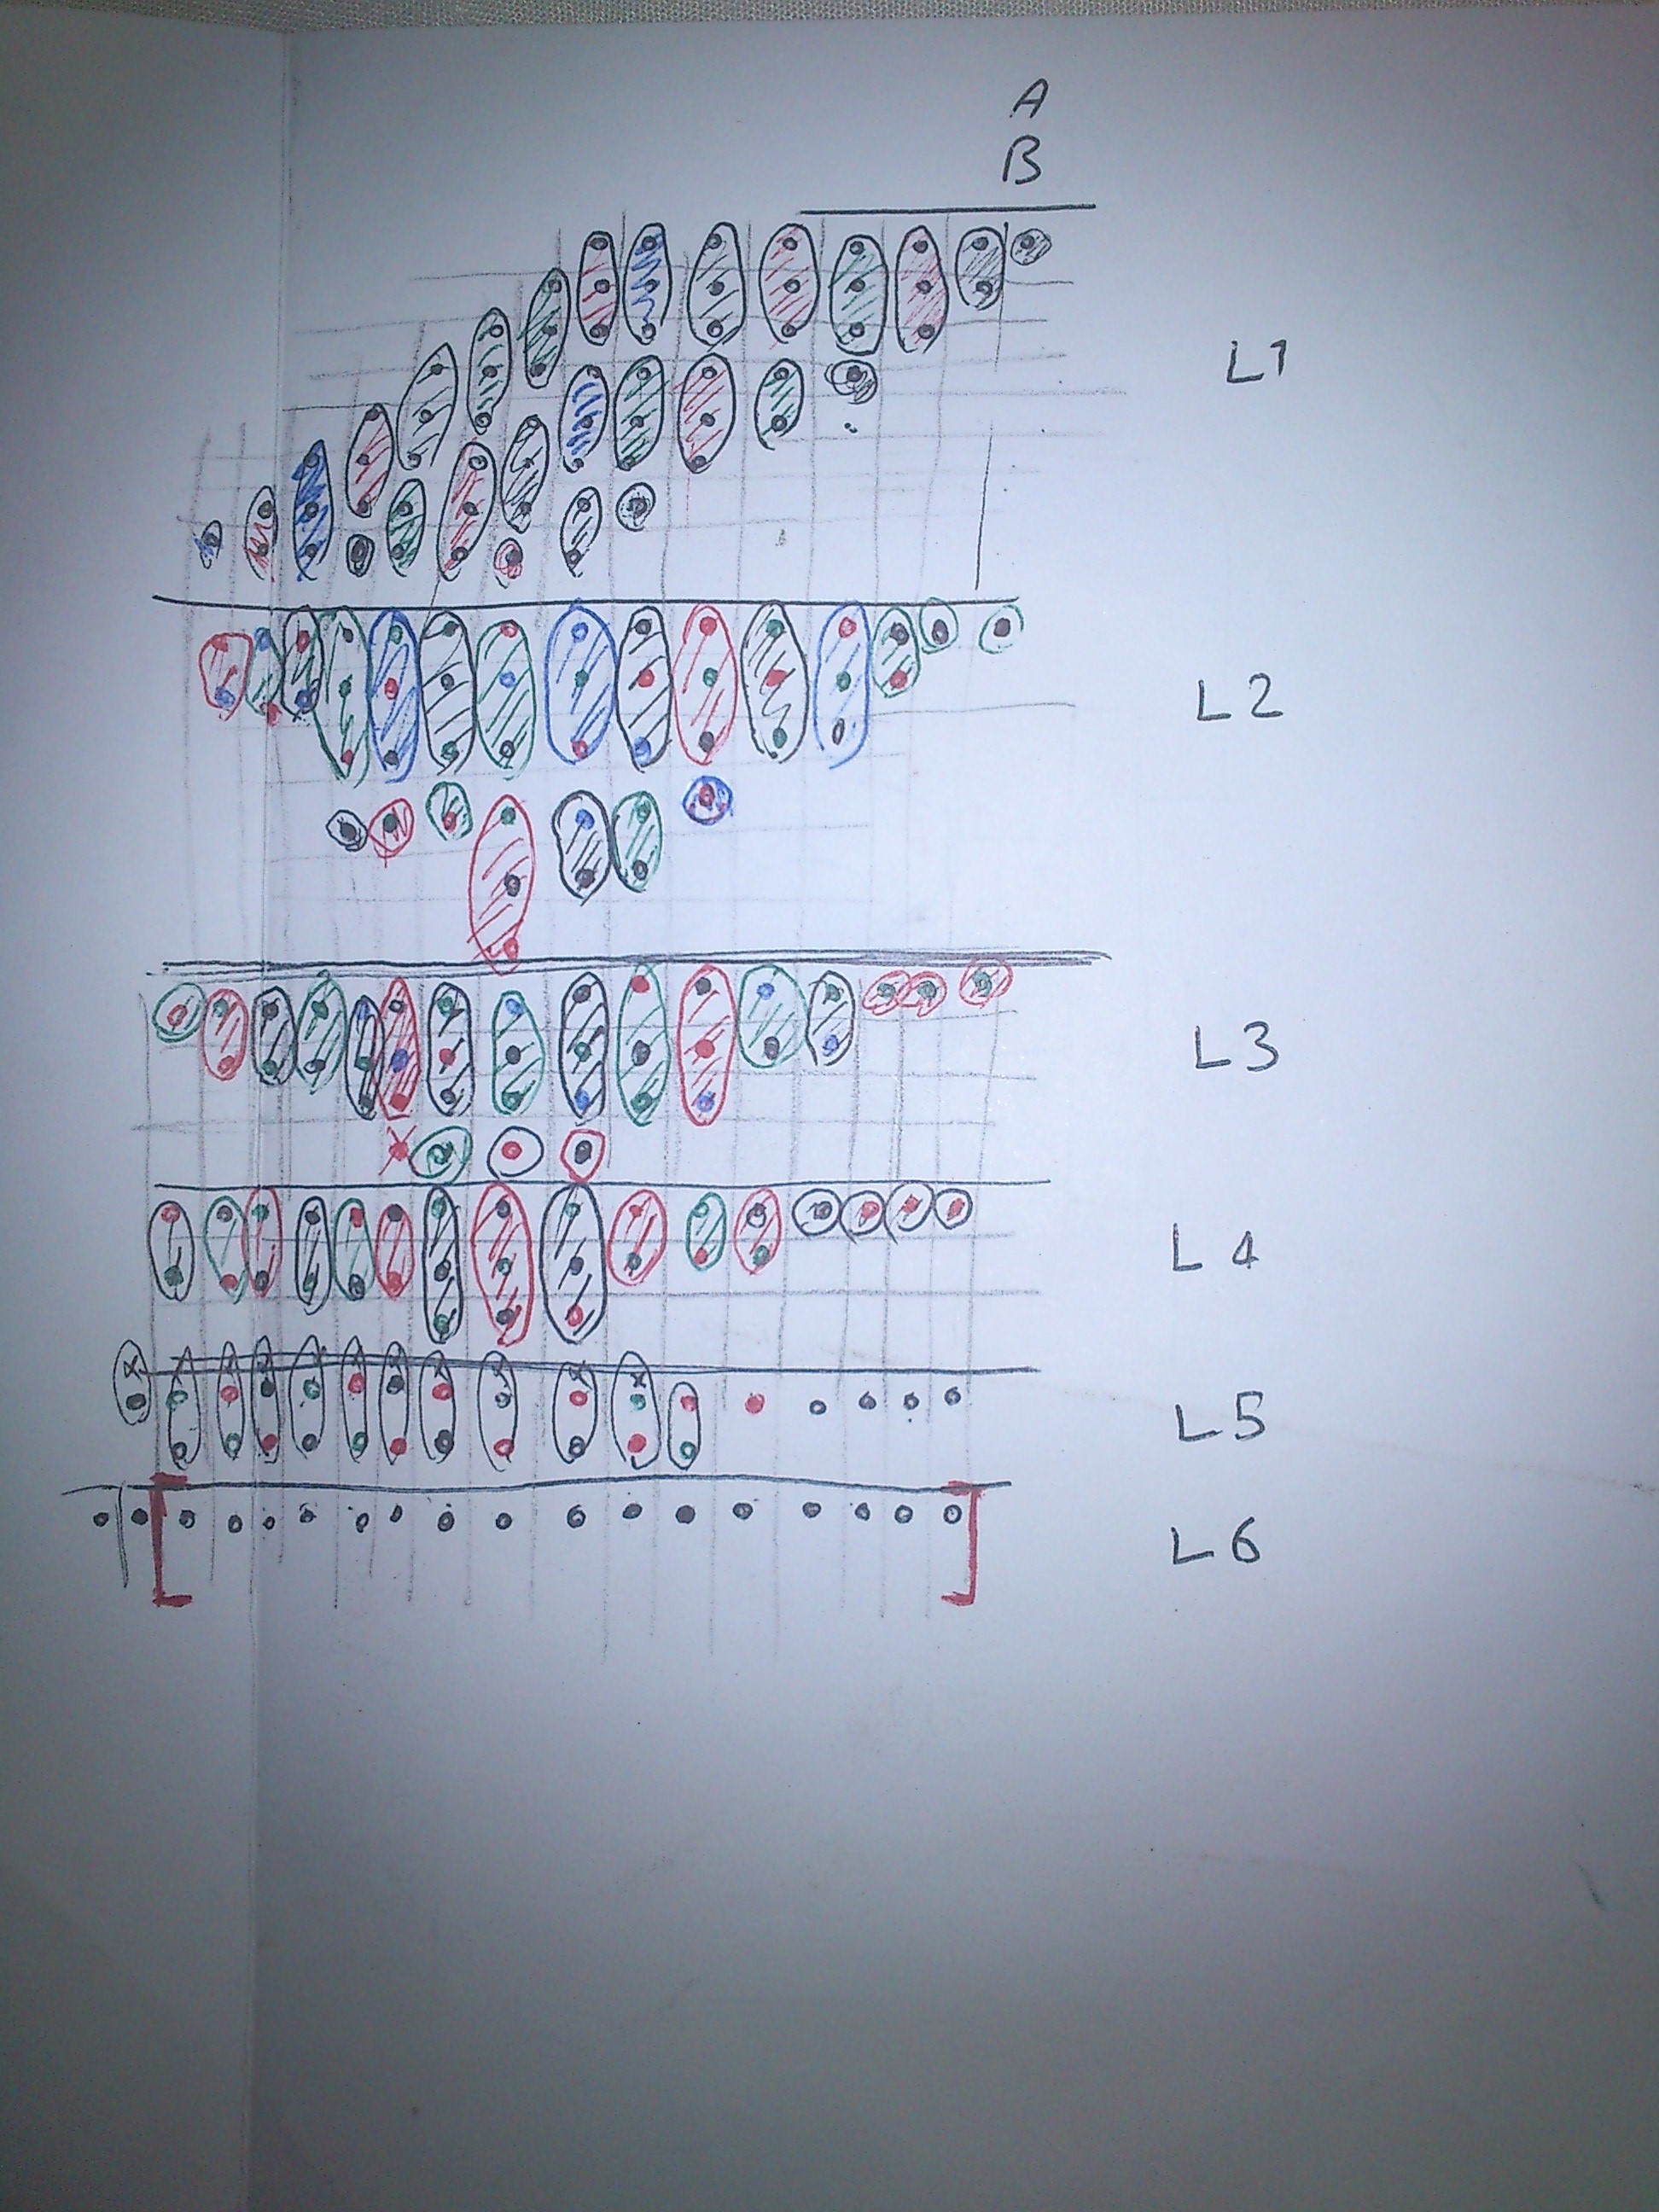 A
B
L1
L2
L3
L4
L5
L6